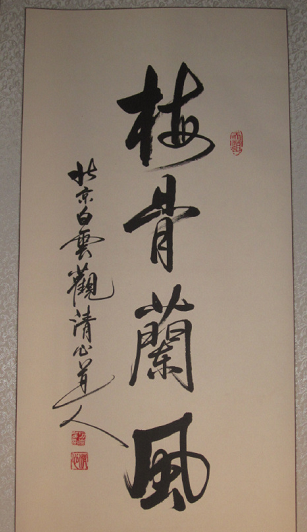 梅骨蘭風
北京白雲觀清心道人